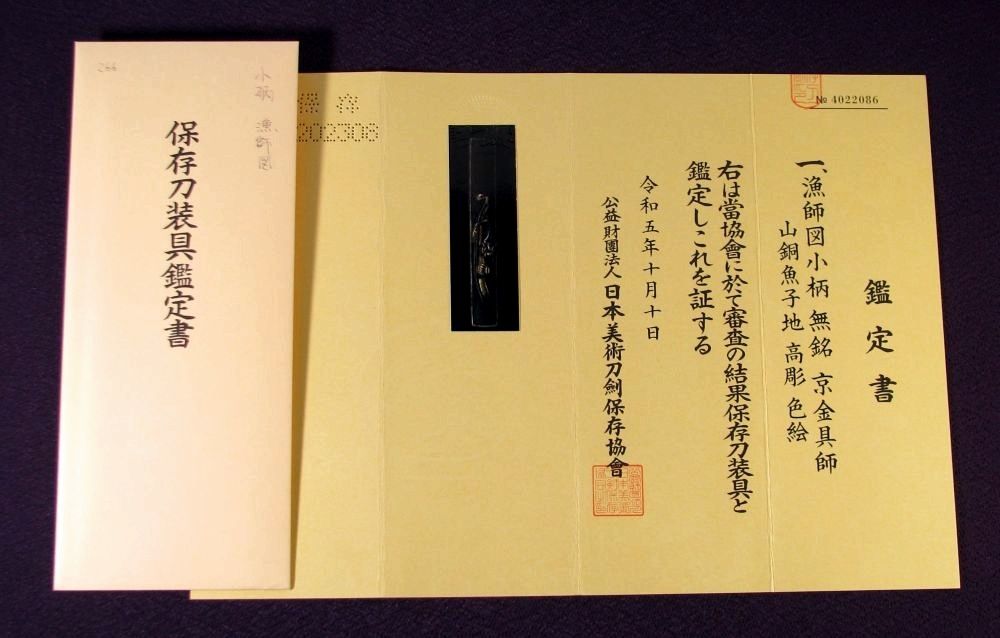 鑑定書
№ 4022086
一、漁師図小柄 無銘 京金具師
山銅魚子地 高彫 色絵
右は當協會に於て審査の結果保存刀装具と
鑑定しこれを証する
令和五年十月十日
公益財團法人 日本美術刀劍保存協會
保存
202308
266
小柄 漁師図
保存刀装具鑑定書